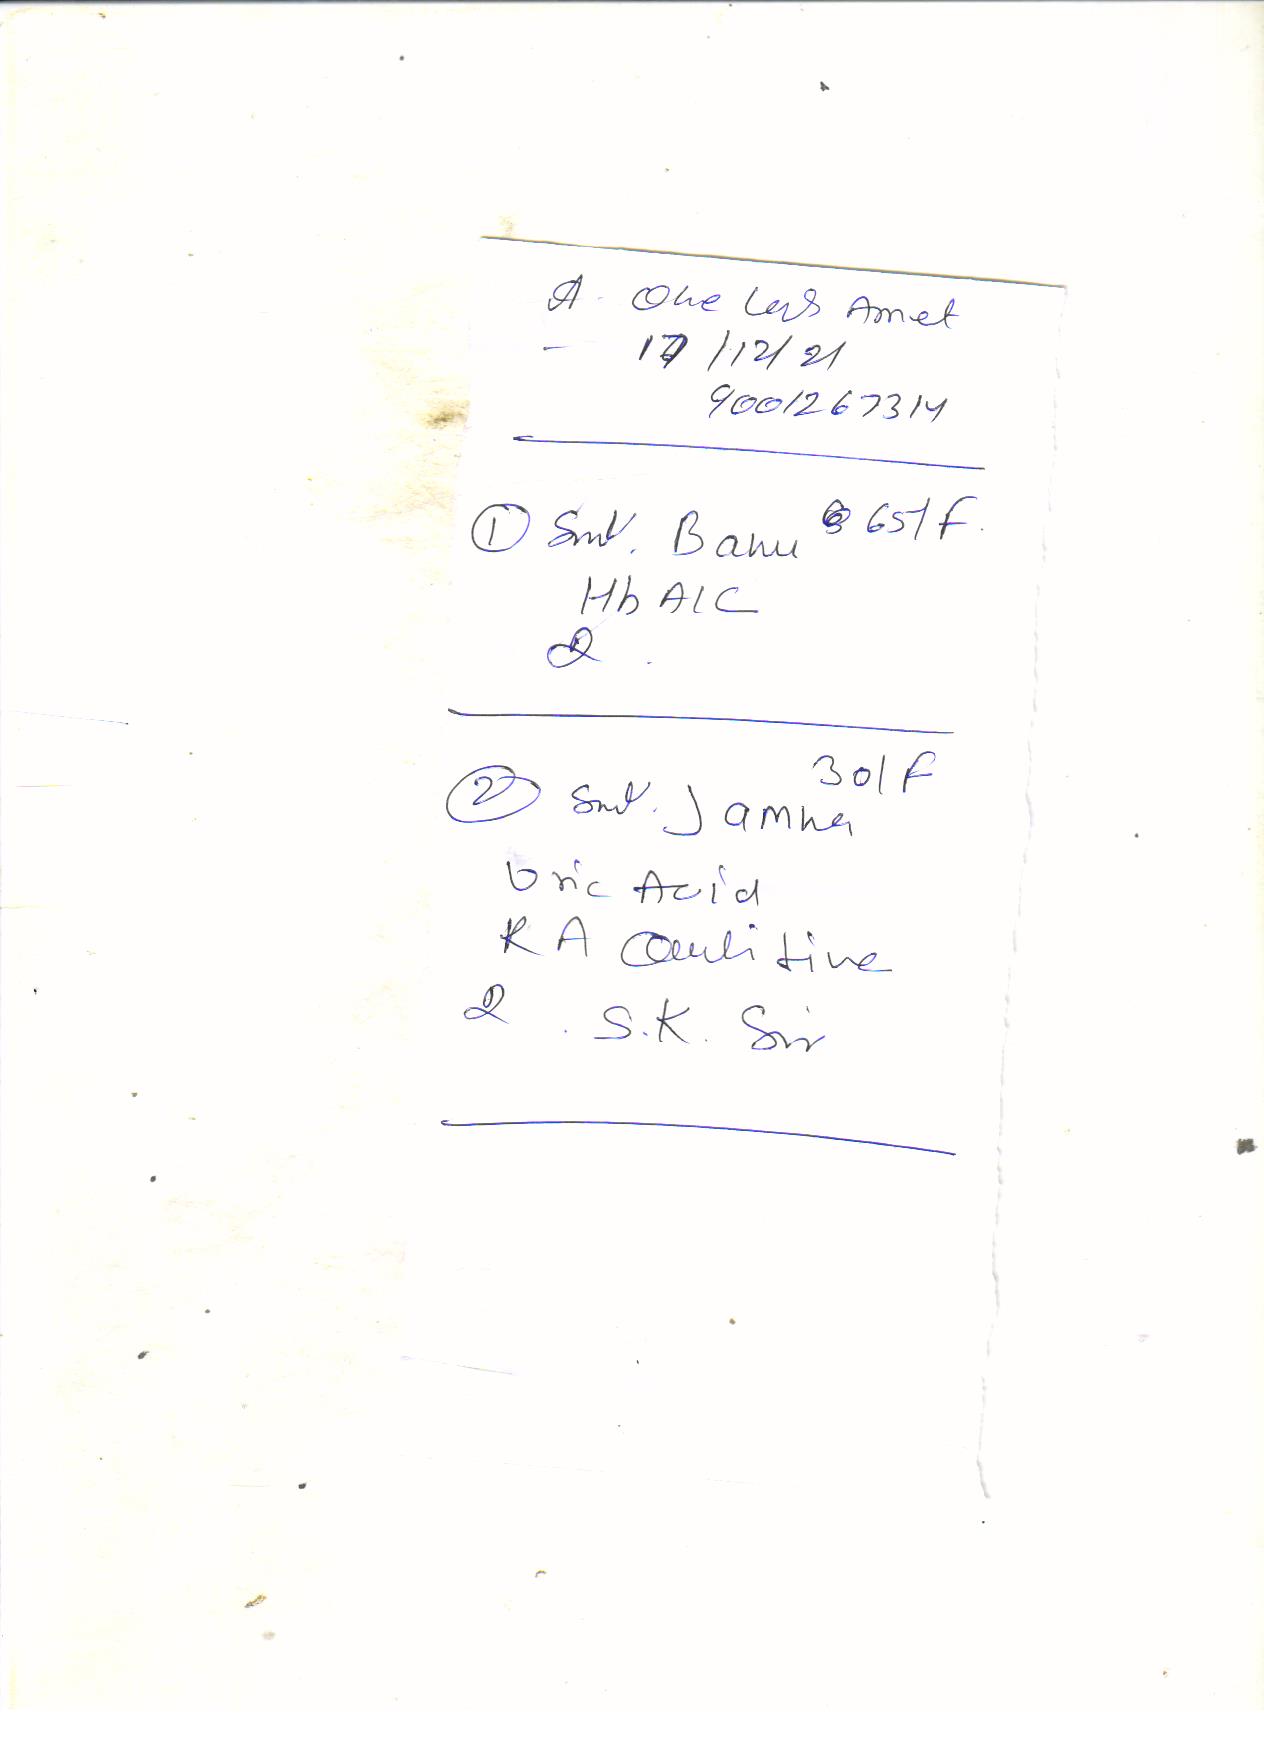 A. One Lab Amet
17/12/21
9001267314
① Smt. Banu 65/F.
HbA1C
② Smt. Jamna 30/F
Uric Acid
RA
S.K. Sir